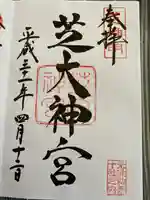 奉拝
芝大神宮
平成三十一年四月十二日